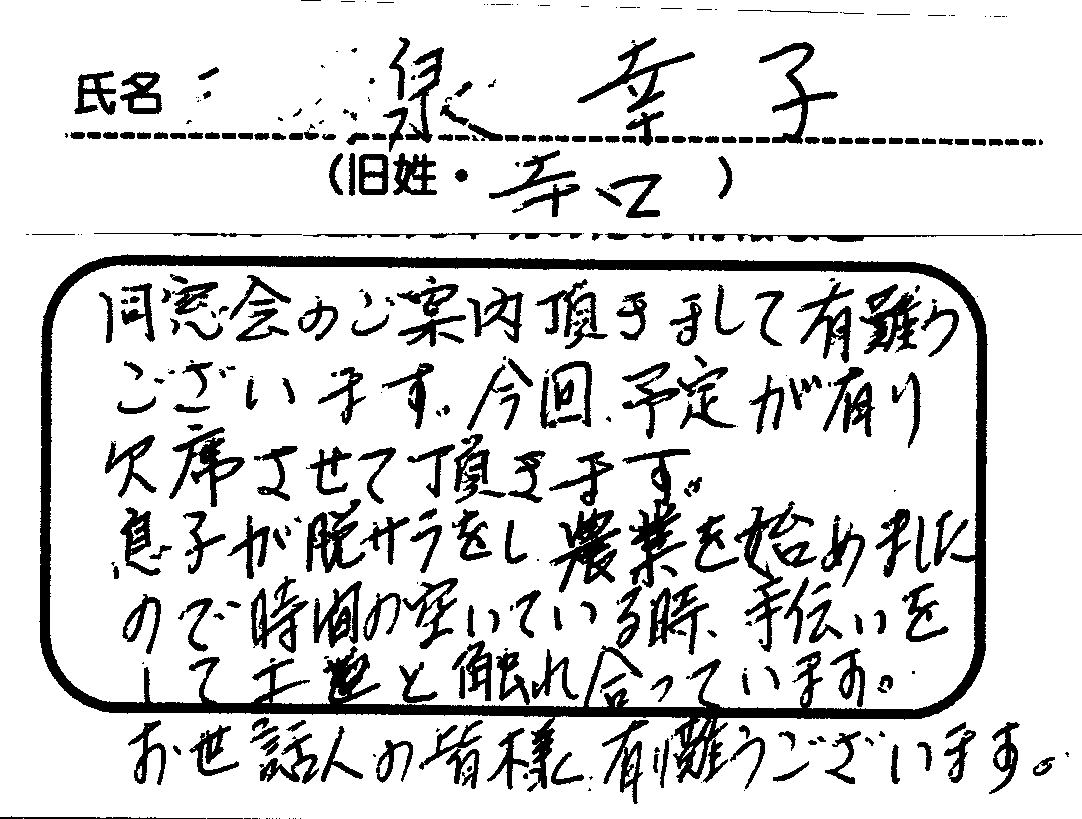 氏名 泉 幸子
(旧姓・辛口)
同窓会のご案内頂きまして有難う
ございます。今回、予定が有り
欠席させて頂きます。
息子が脱サラをし農業を始めました
ので時間の空いている時、手伝いを
して土と触れ合っています。
お世話人の皆様、有難うございます。